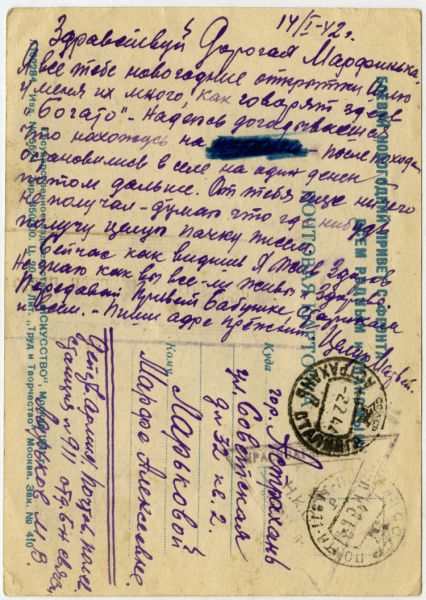 14/I-42г.
Здравствуй Дорогая Марфинька.
Я все тебе новогодние открытки шлю
у меня их много, как говорят здесь
"богато". Надеюсь догадываешься
что нахожусь на
после похода
остановились в селе на один день
потом дальше. От тебя еще ничего
не получал - думаю что где нибудь
получу целую пачку писем.
Сейчас как видишь я жив, здоров
Не знаю как вы все-ли живы и здоровы.
Передавай привет бабушке,
и всем. - Пиши адрес прежний. Целую
БОЕВОЙ НОВОГОДНИЙ ПРИВЕТ С ФРОНТА
ВСЕМ РОДНЫМ И
ПОЧТОВАЯ КАРТОЧКА
Куда
гор. Астрахань
ул. Советская
дм 32 кв. 2.
Кому
Марьковой
Марфе Алексеевне.
Действ. армия. Полев. почт.
станция п 911 отд. б-н связи
Марьков М. В.
"ИСКУССТВО" Москва
Тип. "Труд и Творчество", Москва. Зак. № 410
АСТРАХАНЬ